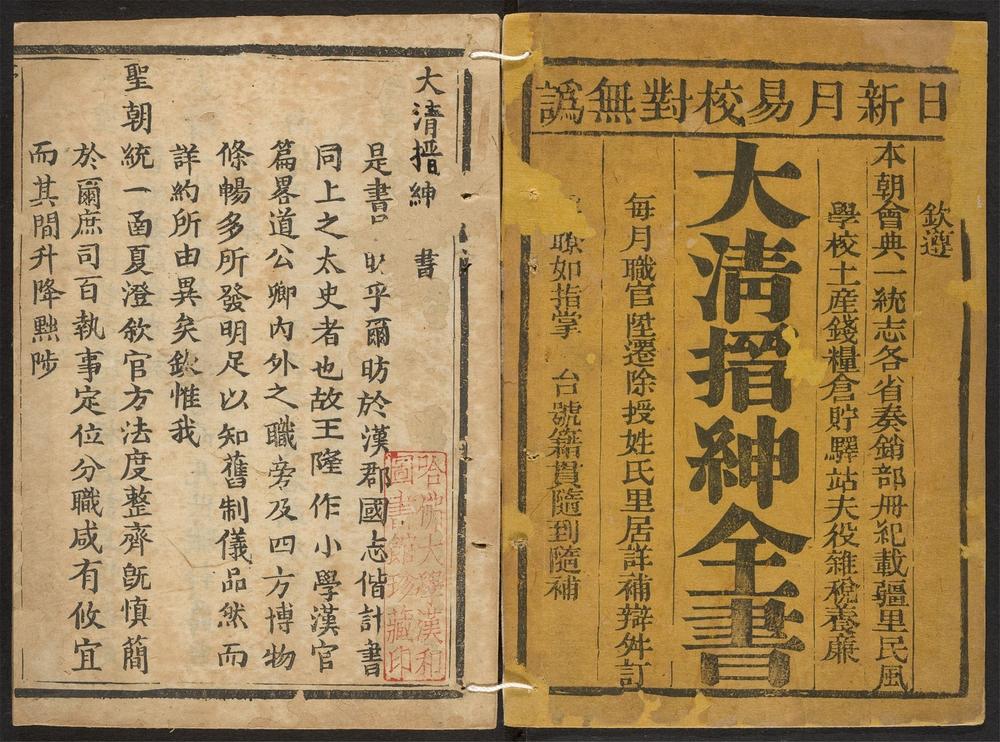 日新月易校對無譌
欽遵
本朝會典一統志各省奏銷部冊紀載疆里民風
學校土產錢糧倉貯驛站夫役雜稅養廉
大清搢紳全書
每月職官陞遷除授姓氏里居詳補辯舛訂
聯如指掌 台號籍貫隨到隨補
大清搢紳 書
是書 昉乎爾昉於漢郡國志偕計書
同上之太史者也故王隆作小學漢官
篇畧道公卿內外之職旁及四方博物
條暢多所發明足以知舊制儀品然而
詳約所由異矣欽惟我
聖朝統一函夏澄敘官方法度整齊旣慎簡
於爾庶司百執事定位分職咸有攸宜
而其間升降黜陟
哈佛大學漢和
圖書館珍藏印